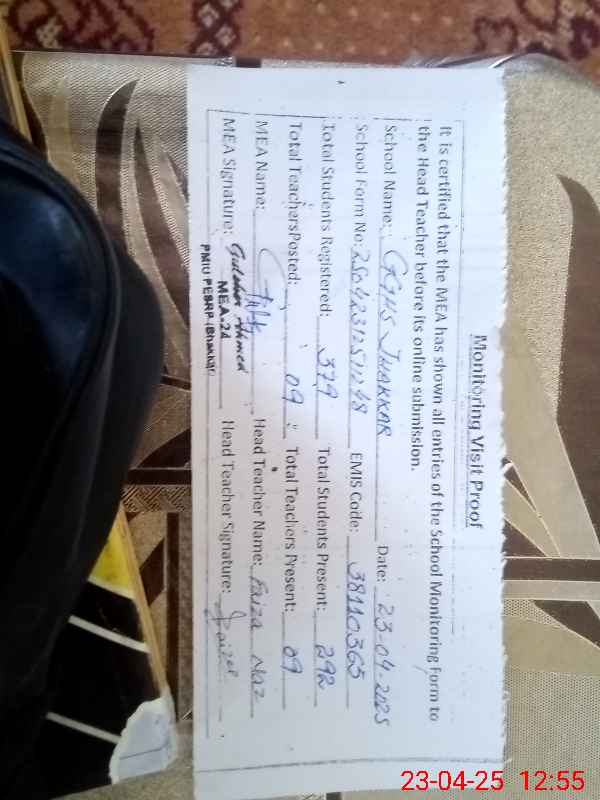 Monitoring Visit Proof
It is certified that the MEA has shown all entries of the School Monitoring Form to
the Head Teacher before its online submission.
School Name: GGHS JHAKKAR Date: 23-04-2025
School Form No: EMIS Code: 38110365
Total Students Registered: 379 Total Students Present: 292
Total Teachers Posted: 09 Total Teachers Present: 09
MEA Name: Head Teacher Name: Faiza Naz
MEA Signature: Ahmed Head Teacher Signature: Faiza
MEA-24
PMIU PESRP (Bhakkar)
23-04-25 12:55